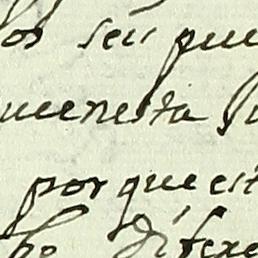 os seii pue
uenesta
porque est
ho difere